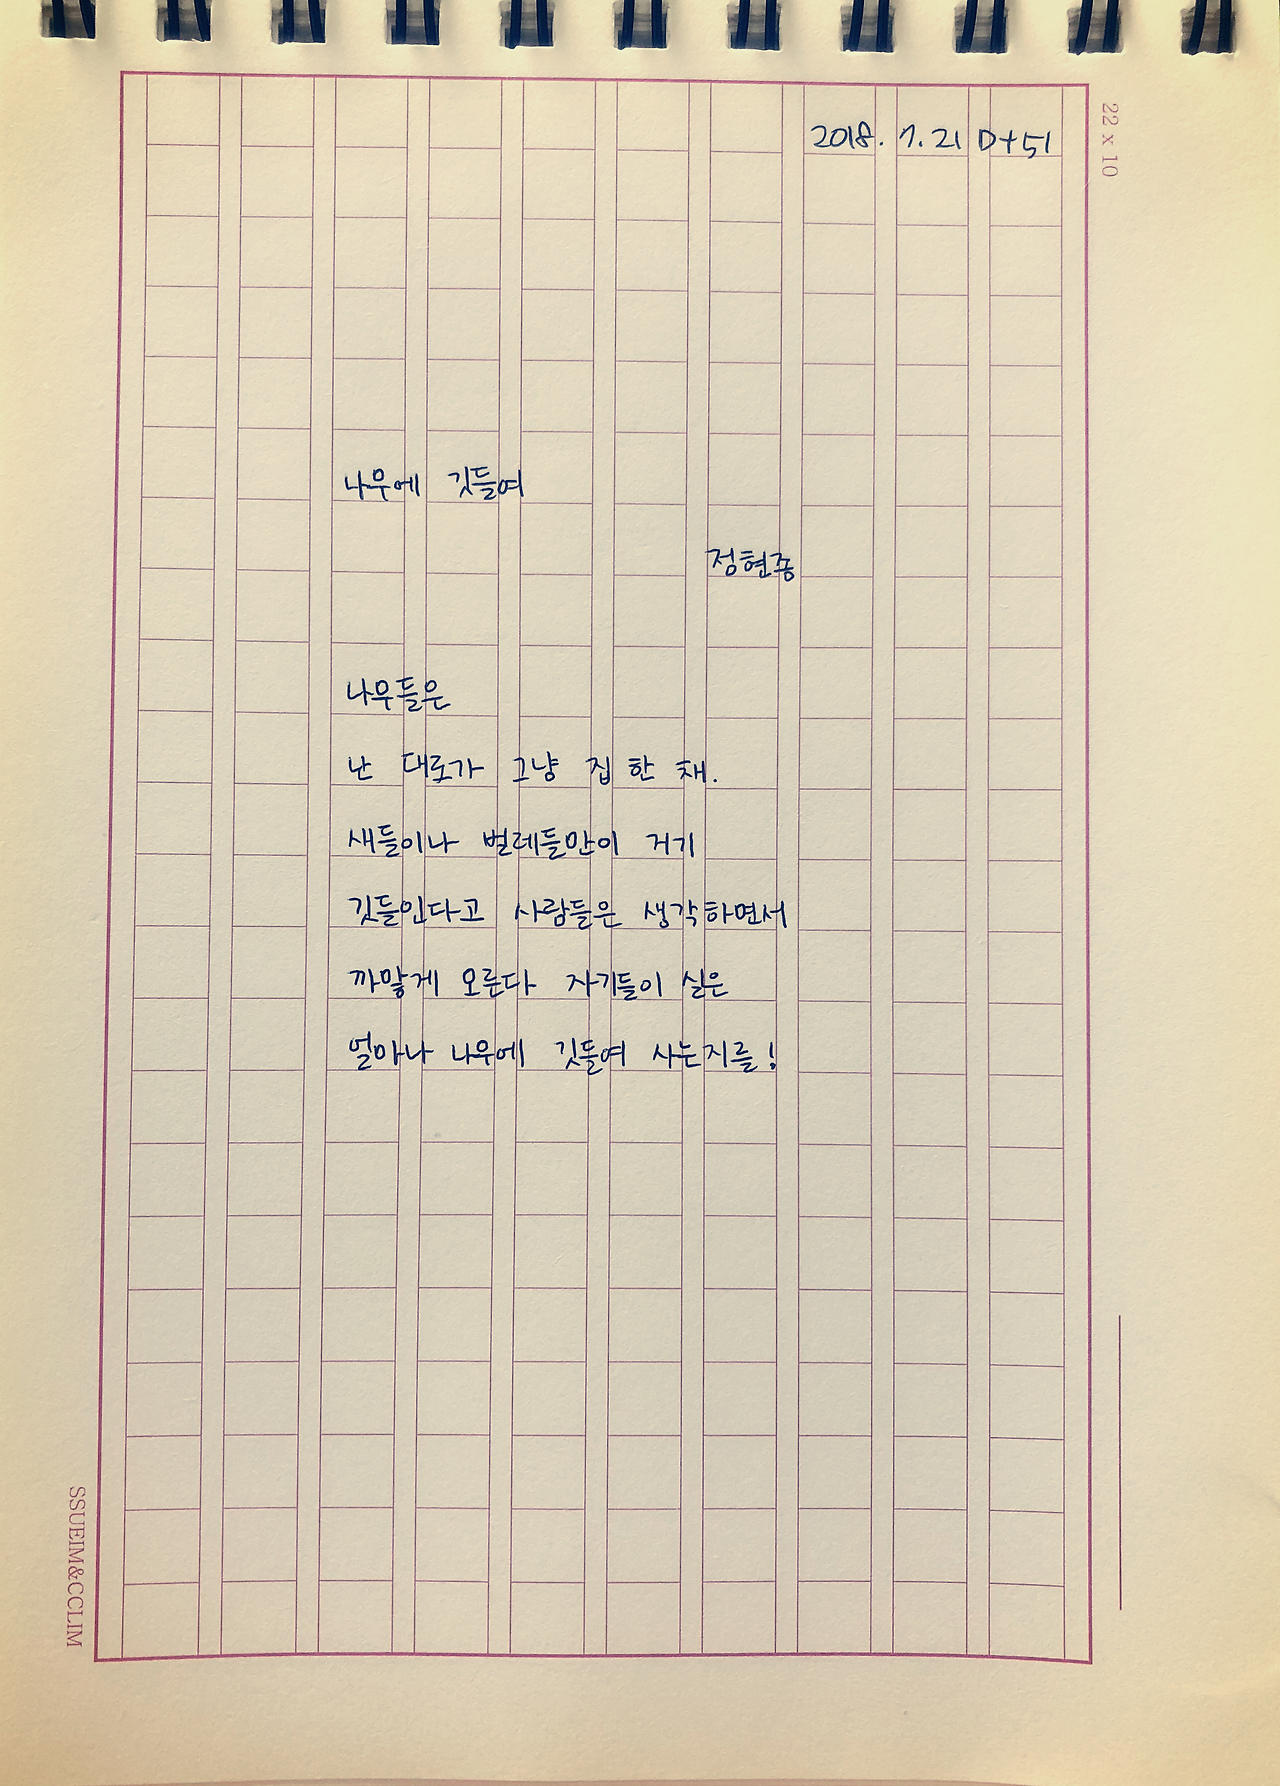 22 x 10
2018. 7. 21 D+51
나무에 깃들여
정현종
나무들은
난 대로가 그냥 집 한 채.
새들이나 벌레들만이 거기
깃들인다고 사람들은 생각하면서
까맣게 모른다 자기들이 실은
얼마나 나무에 깃들여 사는지를!
SSUEIM&CCLIM